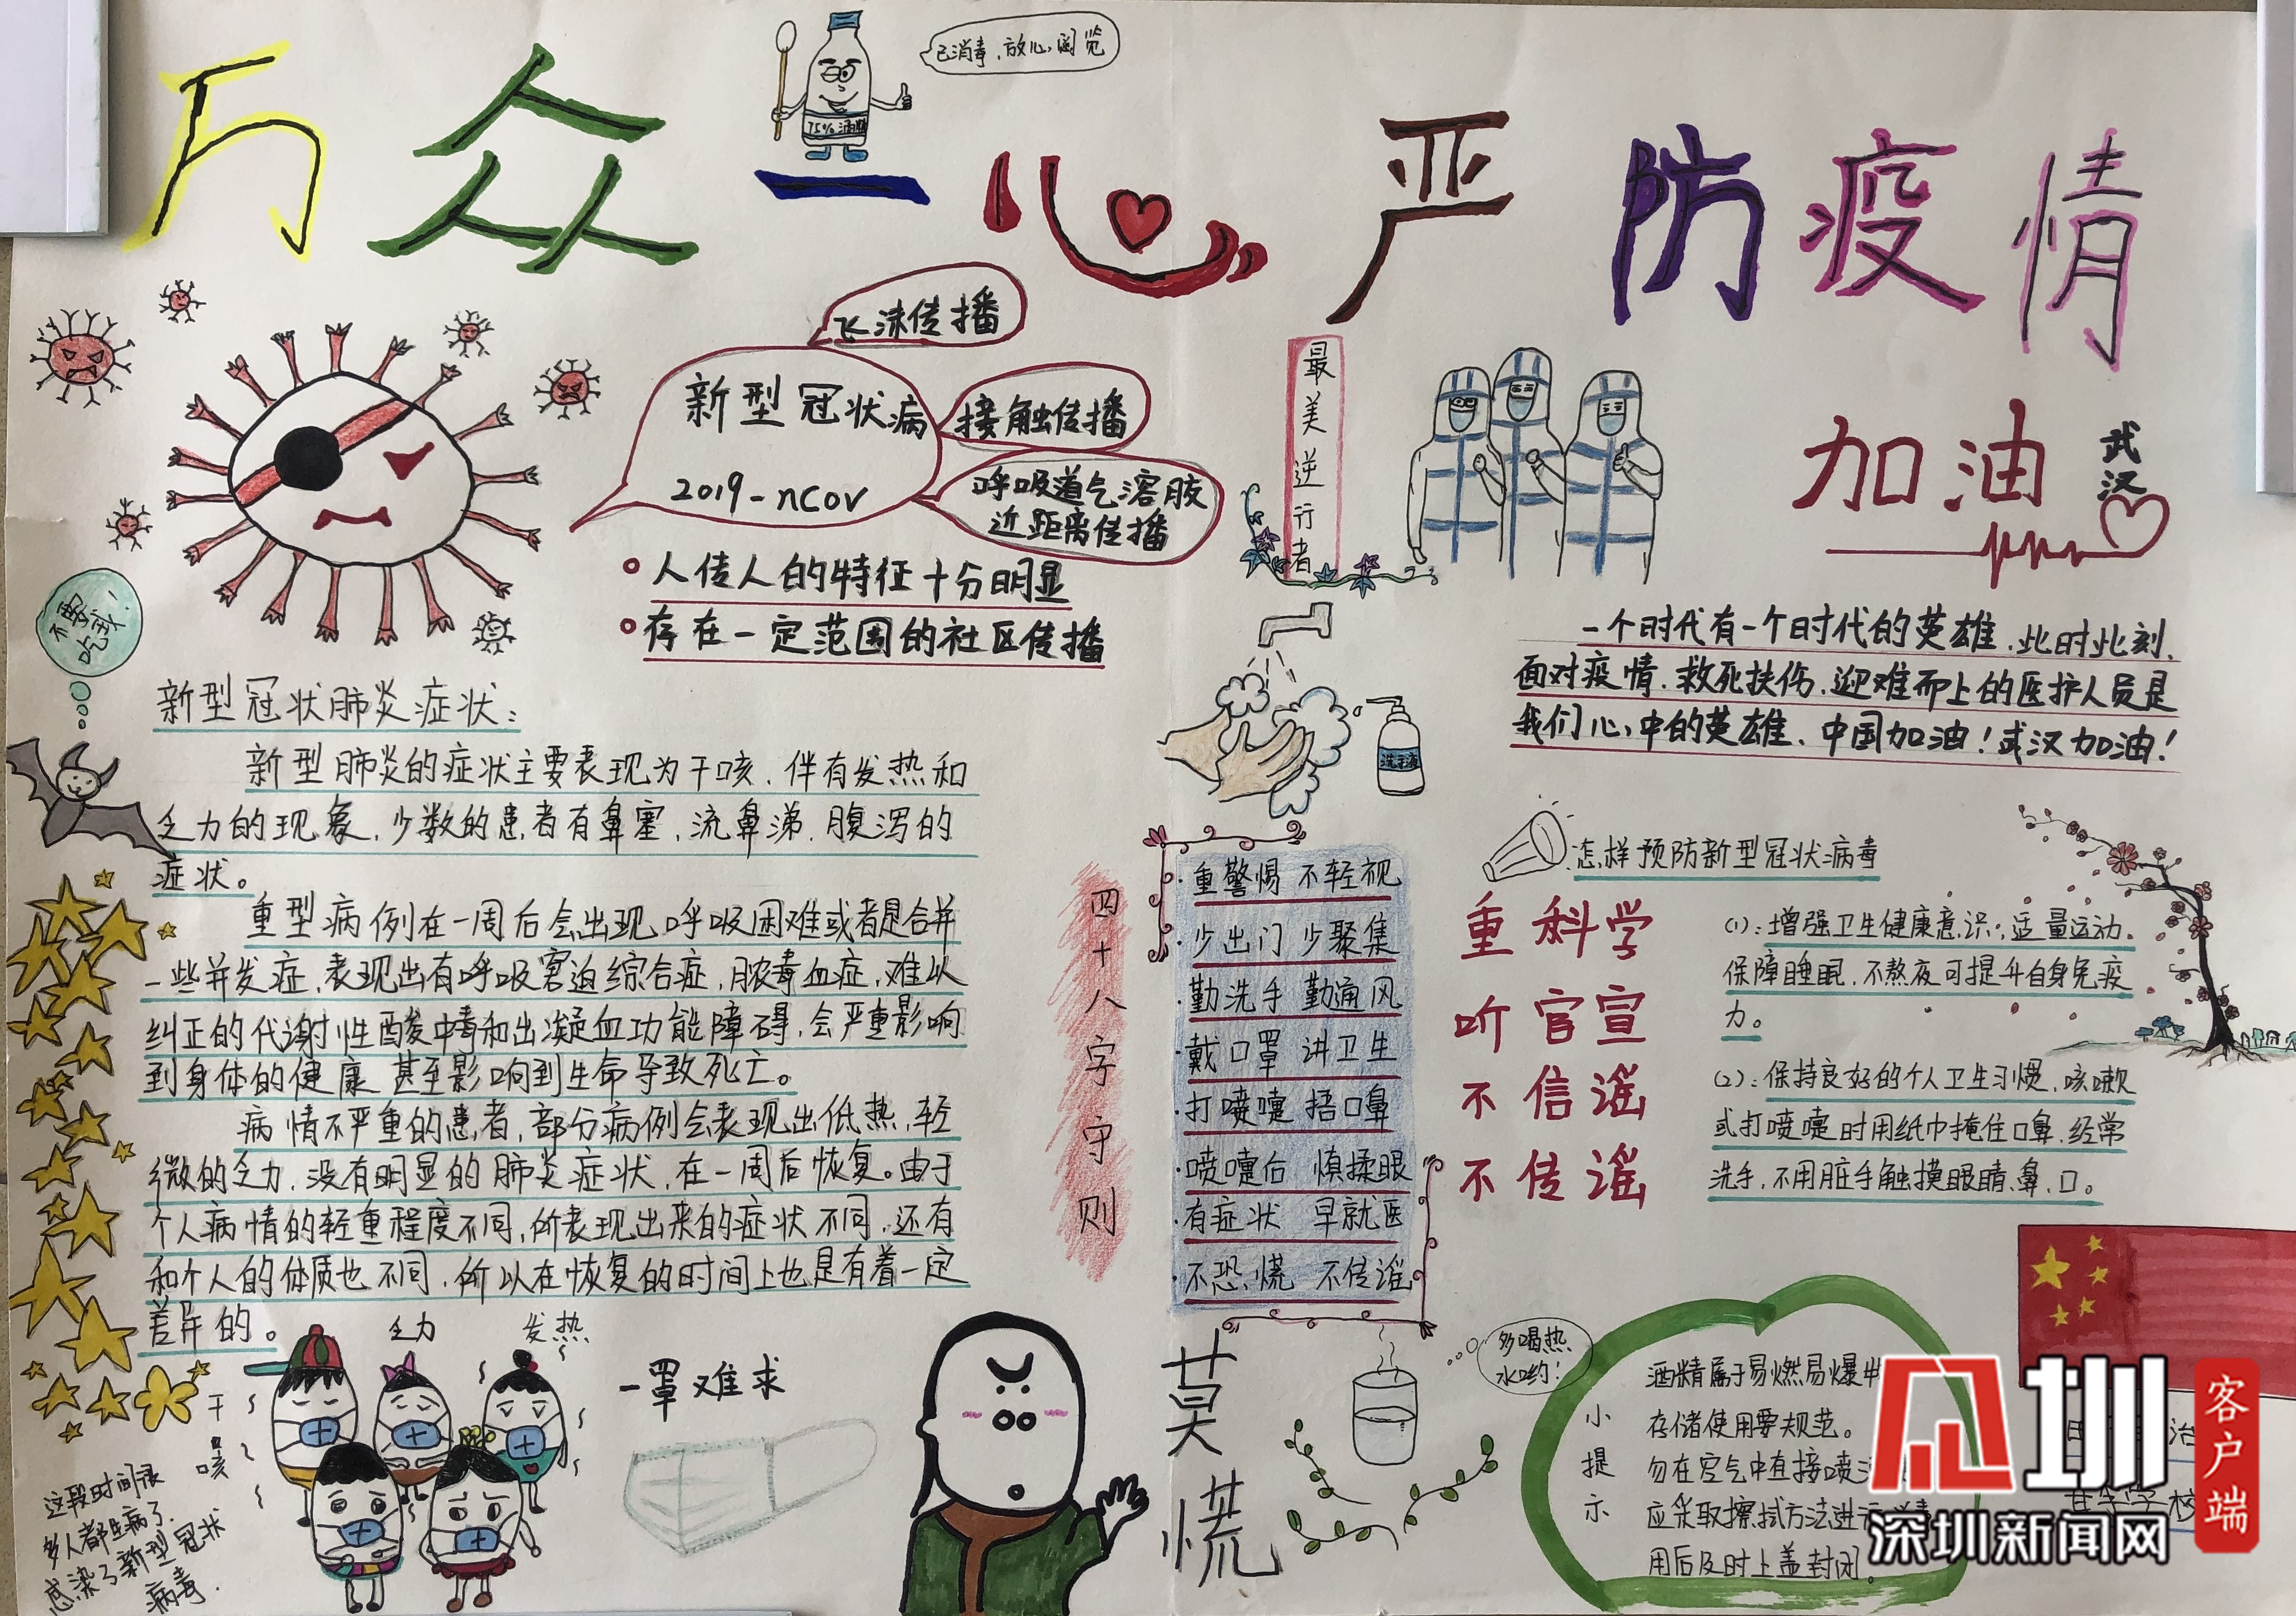 已消毒,放心阅览
75%酒精
万众一心 严防疫情
飞沫传播
新型冠状病
2019-nCoV
接触传播
呼吸道气溶胶
近距离传播
人传人的特征十分明显
存在一定范围的社区传播
最美逆行者
加油
武汉
不要吃我!
新型冠状肺炎症状:
新型肺炎的症状主要表现为干咳.伴有发热和
乏力的现象,少数的患者有鼻塞,流鼻涕.腹泻的
症状。
重型病例在一周后会出现呼吸困难或者是合并
一些并发症,表现出有呼吸窘迫综合症,脓毒血症,难以
纠正的代谢性酸中毒和出凝血功能障碍,会严重影响
到身体的健康 甚至影响到生命导致死亡。
病情不严重的患者,部分病例会表现出低热,轻
微的乏力,没有明显的肺炎症状,在一周后恢复。由于
个人病情的轻重程度不同,所表现出来的症状不同,还有
和个人的体质也不同,所以在恢复的时间上也是有着一定
差异的。
洗手液
一个时代有一个时代的英雄,此时此刻,
面对疫情.救死扶伤,迎难而上的医护人员是
我们心中的英雄、中国加油!武汉加油!
四十八字守则
·重警惕 不轻视
·少出门 少聚集
·勤洗手 勤通风
·戴口罩 讲卫生
·打喷嚏 捂口鼻
·喷嚏后 慎揉眼
·有症状 早就医
·不恐慌 不传谣
怎样预防新型冠状病毒
重科学
听官宣
不信谣
不传谣
(1):增强卫生健康意识,适量运动.
保障睡眠,不熬夜可提升自身免疫
力。
(2):保持良好的个人卫生习惯,咳嗽
或打喷嚏时用纸巾掩住口鼻,经常
洗手,不用脏手触摸眼睛、鼻、口。
乏力
发热
干咳
这段时间很
多人都生病了.
感染了新型冠状
病毒.
一罩难求
莫慌
多喝热
水哟!
小提示
酒精属于易燃易爆
存储使用要规范。
勿在空气中直接喷
应采取擦拭方法进行
用后及时上盖封闭。
圳
深圳新闻网
客户端